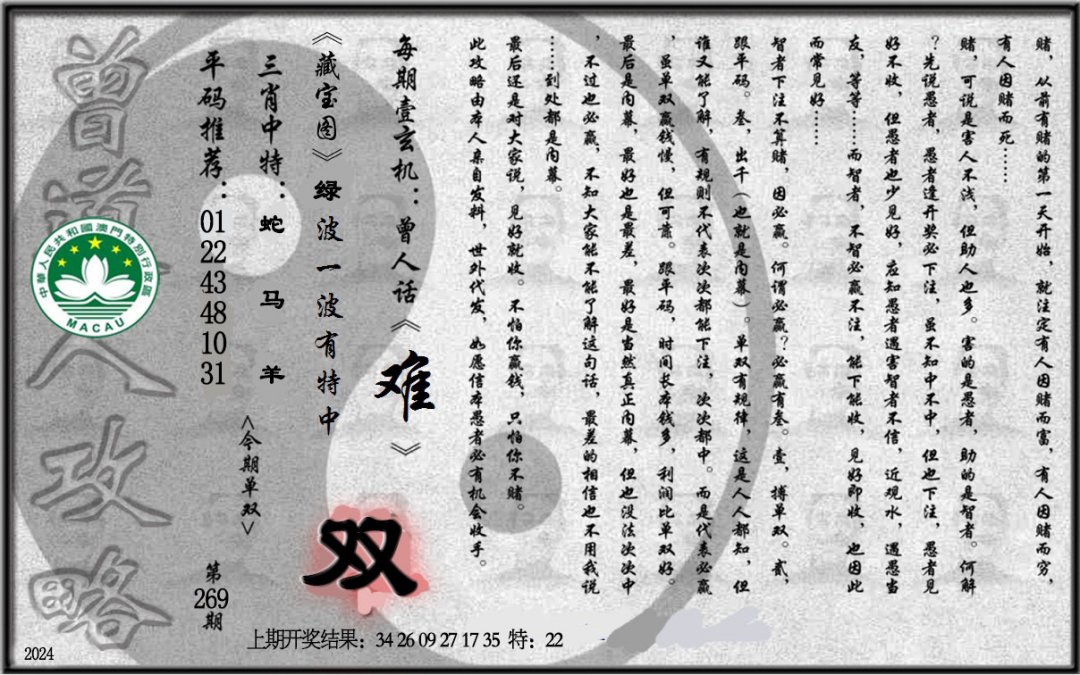 赌，从前有赌的第一天开始，就注定有人因赌而富，有人因赌而穷，
有人因赌而死……
赌，可说是害人不浅，但助人也多。害的是愚者，助的是智者。何解
？先说愚者，愚者逢开奖必下注，虽不知中不中，但也下注，愚者见
好不收，但愚者也少见好，应知愚者遇害智者不信，近观水，遇愚当
友，等等……而智者，不智必赢不注，能下能收，见好即收，也因此
而常见好……
智者下注不算赌，因必赢。何谓必赢？必赢有叁。壹，搏单双。贰，
跟平码。叁，出千（也就是内幕）。单双有规律，这是人人都知，但
谁又能了解，有规则不代表次次都能下注，次次都中。而是代表必赢
，虽单双赢钱慢，但可靠。跟平码，时间长本钱多，利润比单双好。
最后是内幕，最好也是最差，最好是当然真正内幕，但也没法次次中
，不过也必赢，不知大家能不能了解这句话，最差的相信也不用我说
……到处都是内幕。
最后还是对大家说，见好就收。不怕你赢钱，只怕你不赌。
此攻略由本人亲自发料，世外代发，如愿信本愚者必有机会收手。
每期壹玄机：曾人话《难》
《藏宝图》绿波一波有特中
双
<今期单双>
三肖中特：蛇马羊
平码推荐：01 22 43 48 10 31
第269期
曾道人攻略
中華人民共和國澳門特別行政區
MACAU
上期开奖结果：34 26 09 27 17 35 特：22
2024